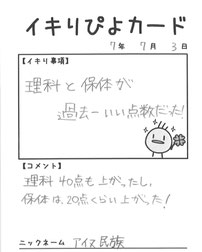 イキりぴよカード
7年 7月 3日
【イキり事項】
理科と保体が
過去一いい点数だった!
【コメント】
理科40点も上がったし、
保体は、20点くらい上がった!
ニックネーム アイヌ民族